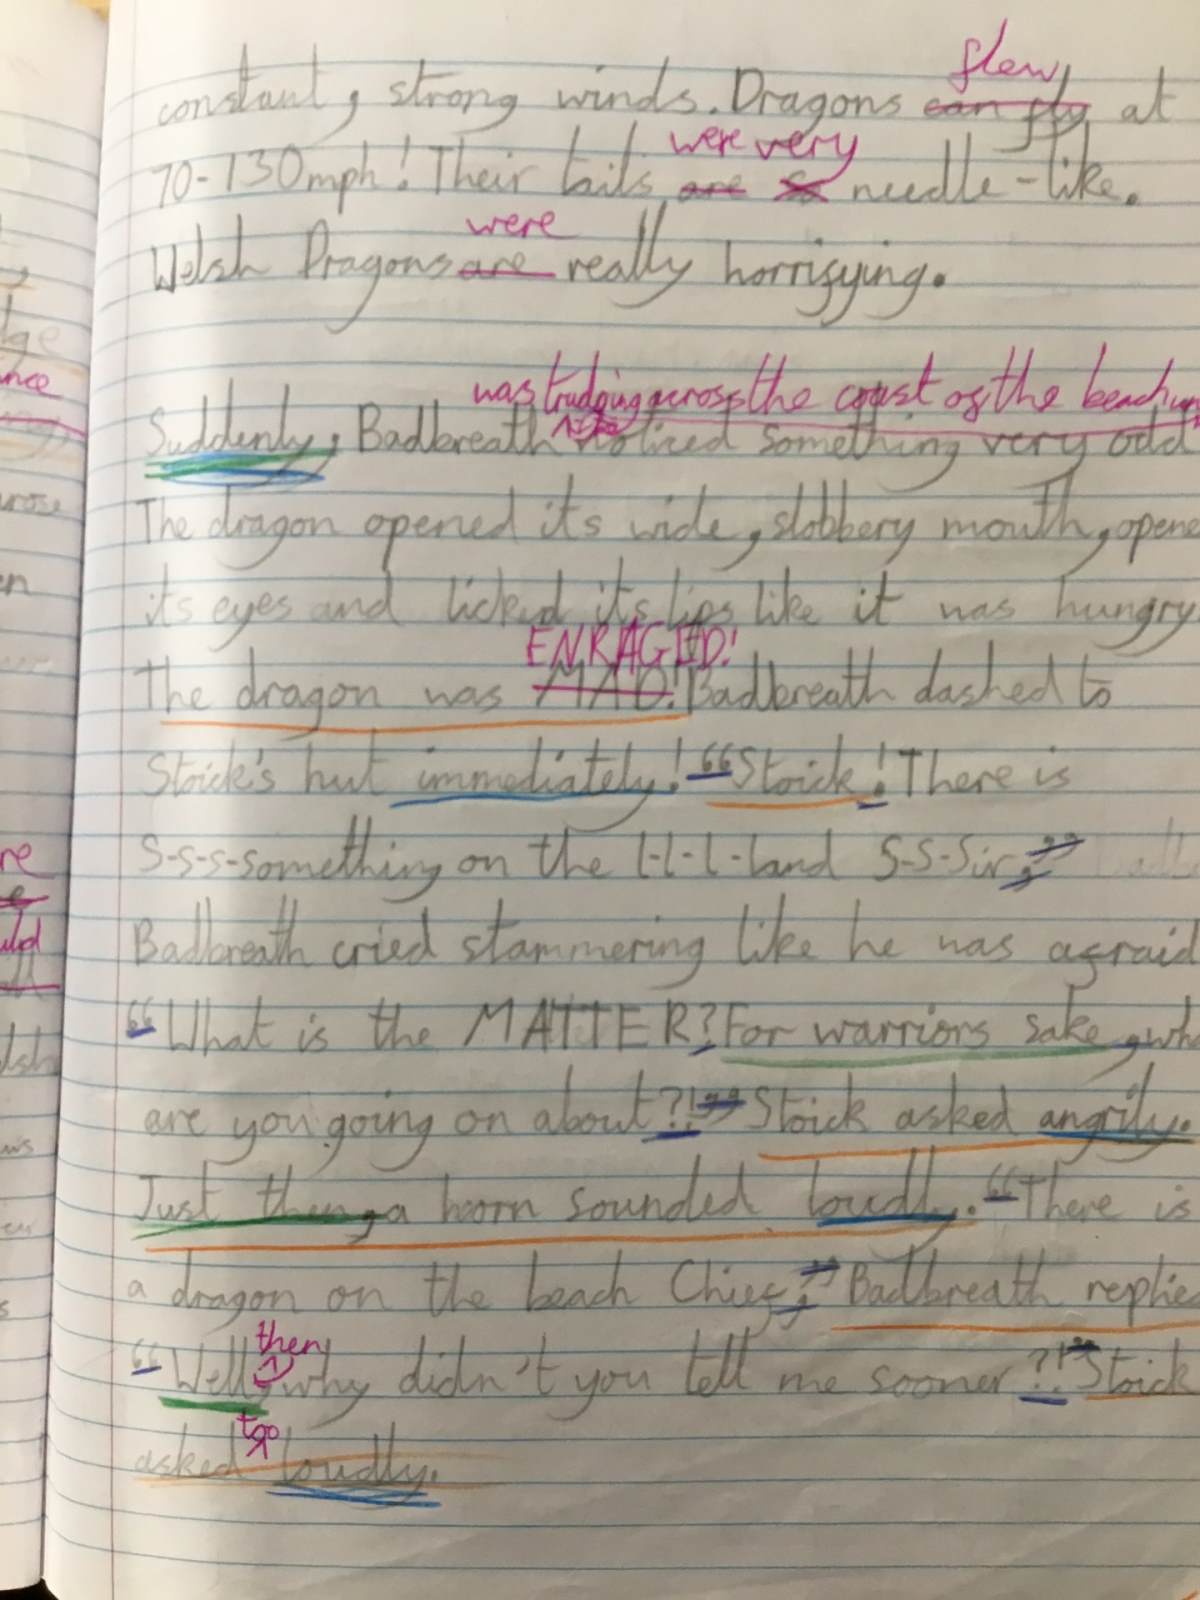 flew
constant, strong winds. Dragons can fly at
were very
70-130mph! Their tails are so needle-like.
were
Welsh Dragons are really horrifying.
was trudging across the coast of the beach
Suddenly, Badbreath noticed something very odd
The dragon opened its wide, slobbery mouth, opene
its eyes and licked its lips like it was hungry
ENRAGED!
The dragon was MAD! Badbreath dashed to
Stoick's hut immediately! "Stoick! There is
S-s-s-something on the l-l-l-land S-S-Sir,"
Badbreath cried stammering like he was afraid
"What is the MATTER? For warriors sake, wh
are you going on about?!" Stoick asked angrily.
Just then, a horn sounded loudly. "There is
a dragon on the beach Chief," Badbreath replie
then
"Well, why didn't you tell me sooner?!" Stoick
too
asked loudly.